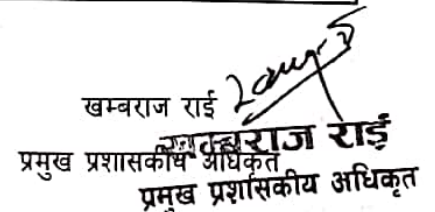 खम्बराज राई
खम्बराज राई
प्रमुख प्रशासकीय अधिकृत
प्रमुख प्रशासकीय अधिकृत